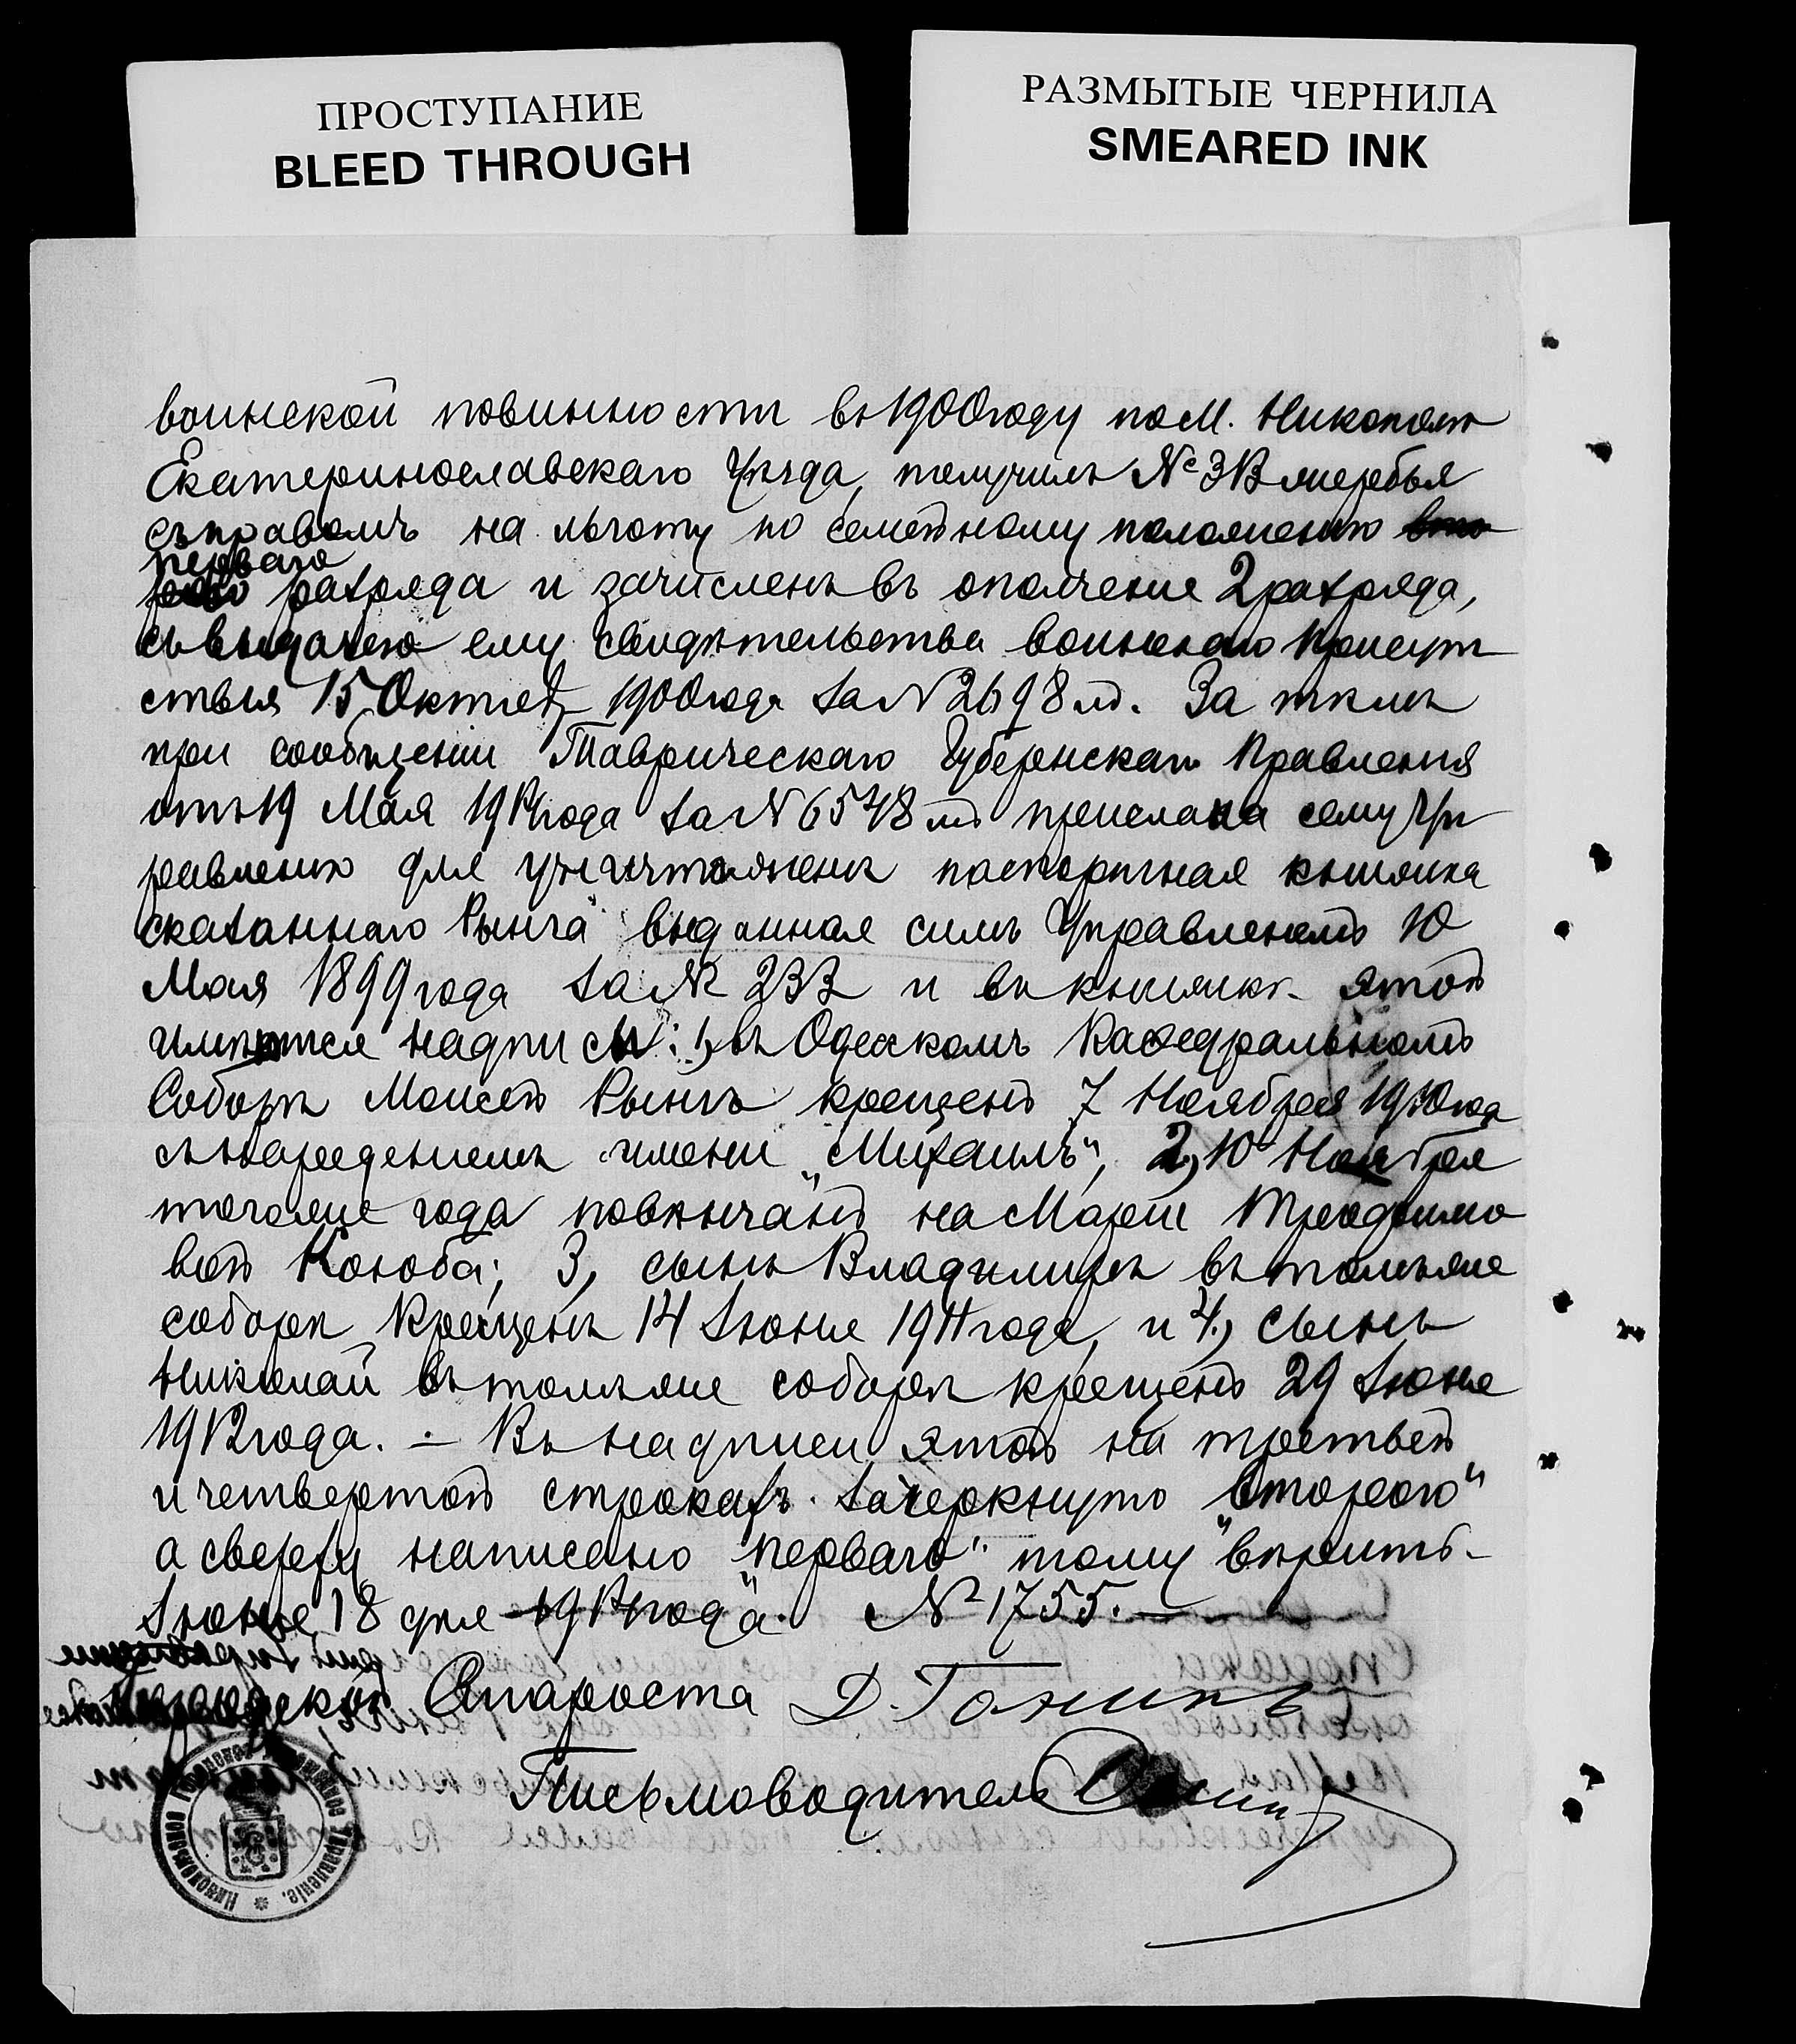 ПРОСТУПАНИЕ
BLEED THROUGH
РАЗМЫТЫЕ ЧЕРНИЛА
SMEARED INK
воинской повинности въ 1900 году по М. Никополю
Екатеринославскаго Уѣзда, получилъ № 33 жеребья
съ правомъ на льготу по семейному положенію вто
перваго
раго разряда и зачисленъ въ ополченіе 2 разряда,
съ выдачею ему свидѣтельства воинскаго Присут
ствія 15 Октяб. 1900 года за № 2698 мъ. За тѣмъ
при сообщеніи Таврическаго Губернскаго Правленія
отъ 19 Мая 1914 года за № 6548 мъ прислана сему Уп
равленію для уничтоженія паспортная книжка
сказаннаго Рынга выданная симъ Управленіемъ 10
Мая 1899 года за № 233 и въ книжкѣ этой
имѣются надписи: 1, въ Одесскомъ Кафедральномъ
Соборѣ Моисей Рынгъ крещенъ 7 Ноября 1910 года
съ нареченіемъ имени „Михаилъ", 2, 10 Ноября
тогоже года повѣнчанъ на Маріи Трофимо
вой Коюба; 3, сынъ Владимиръ въ томъ же
соборѣ крещенъ 14 Іюня 1911 года, и 4, сынъ
Николай въ томъ же соборѣ крещенъ 29 Іюня
1912 года. — Въ надписи этой на третьей
и четвертой строкахъ зачеркнуто „второго"
а сверху написано „перваго" тому вѣрить.
Іюня 18 дня 1914 года. № 1755. —
Староста Д. Галкинъ
Письмоводитель
Никопольское Управленіе.